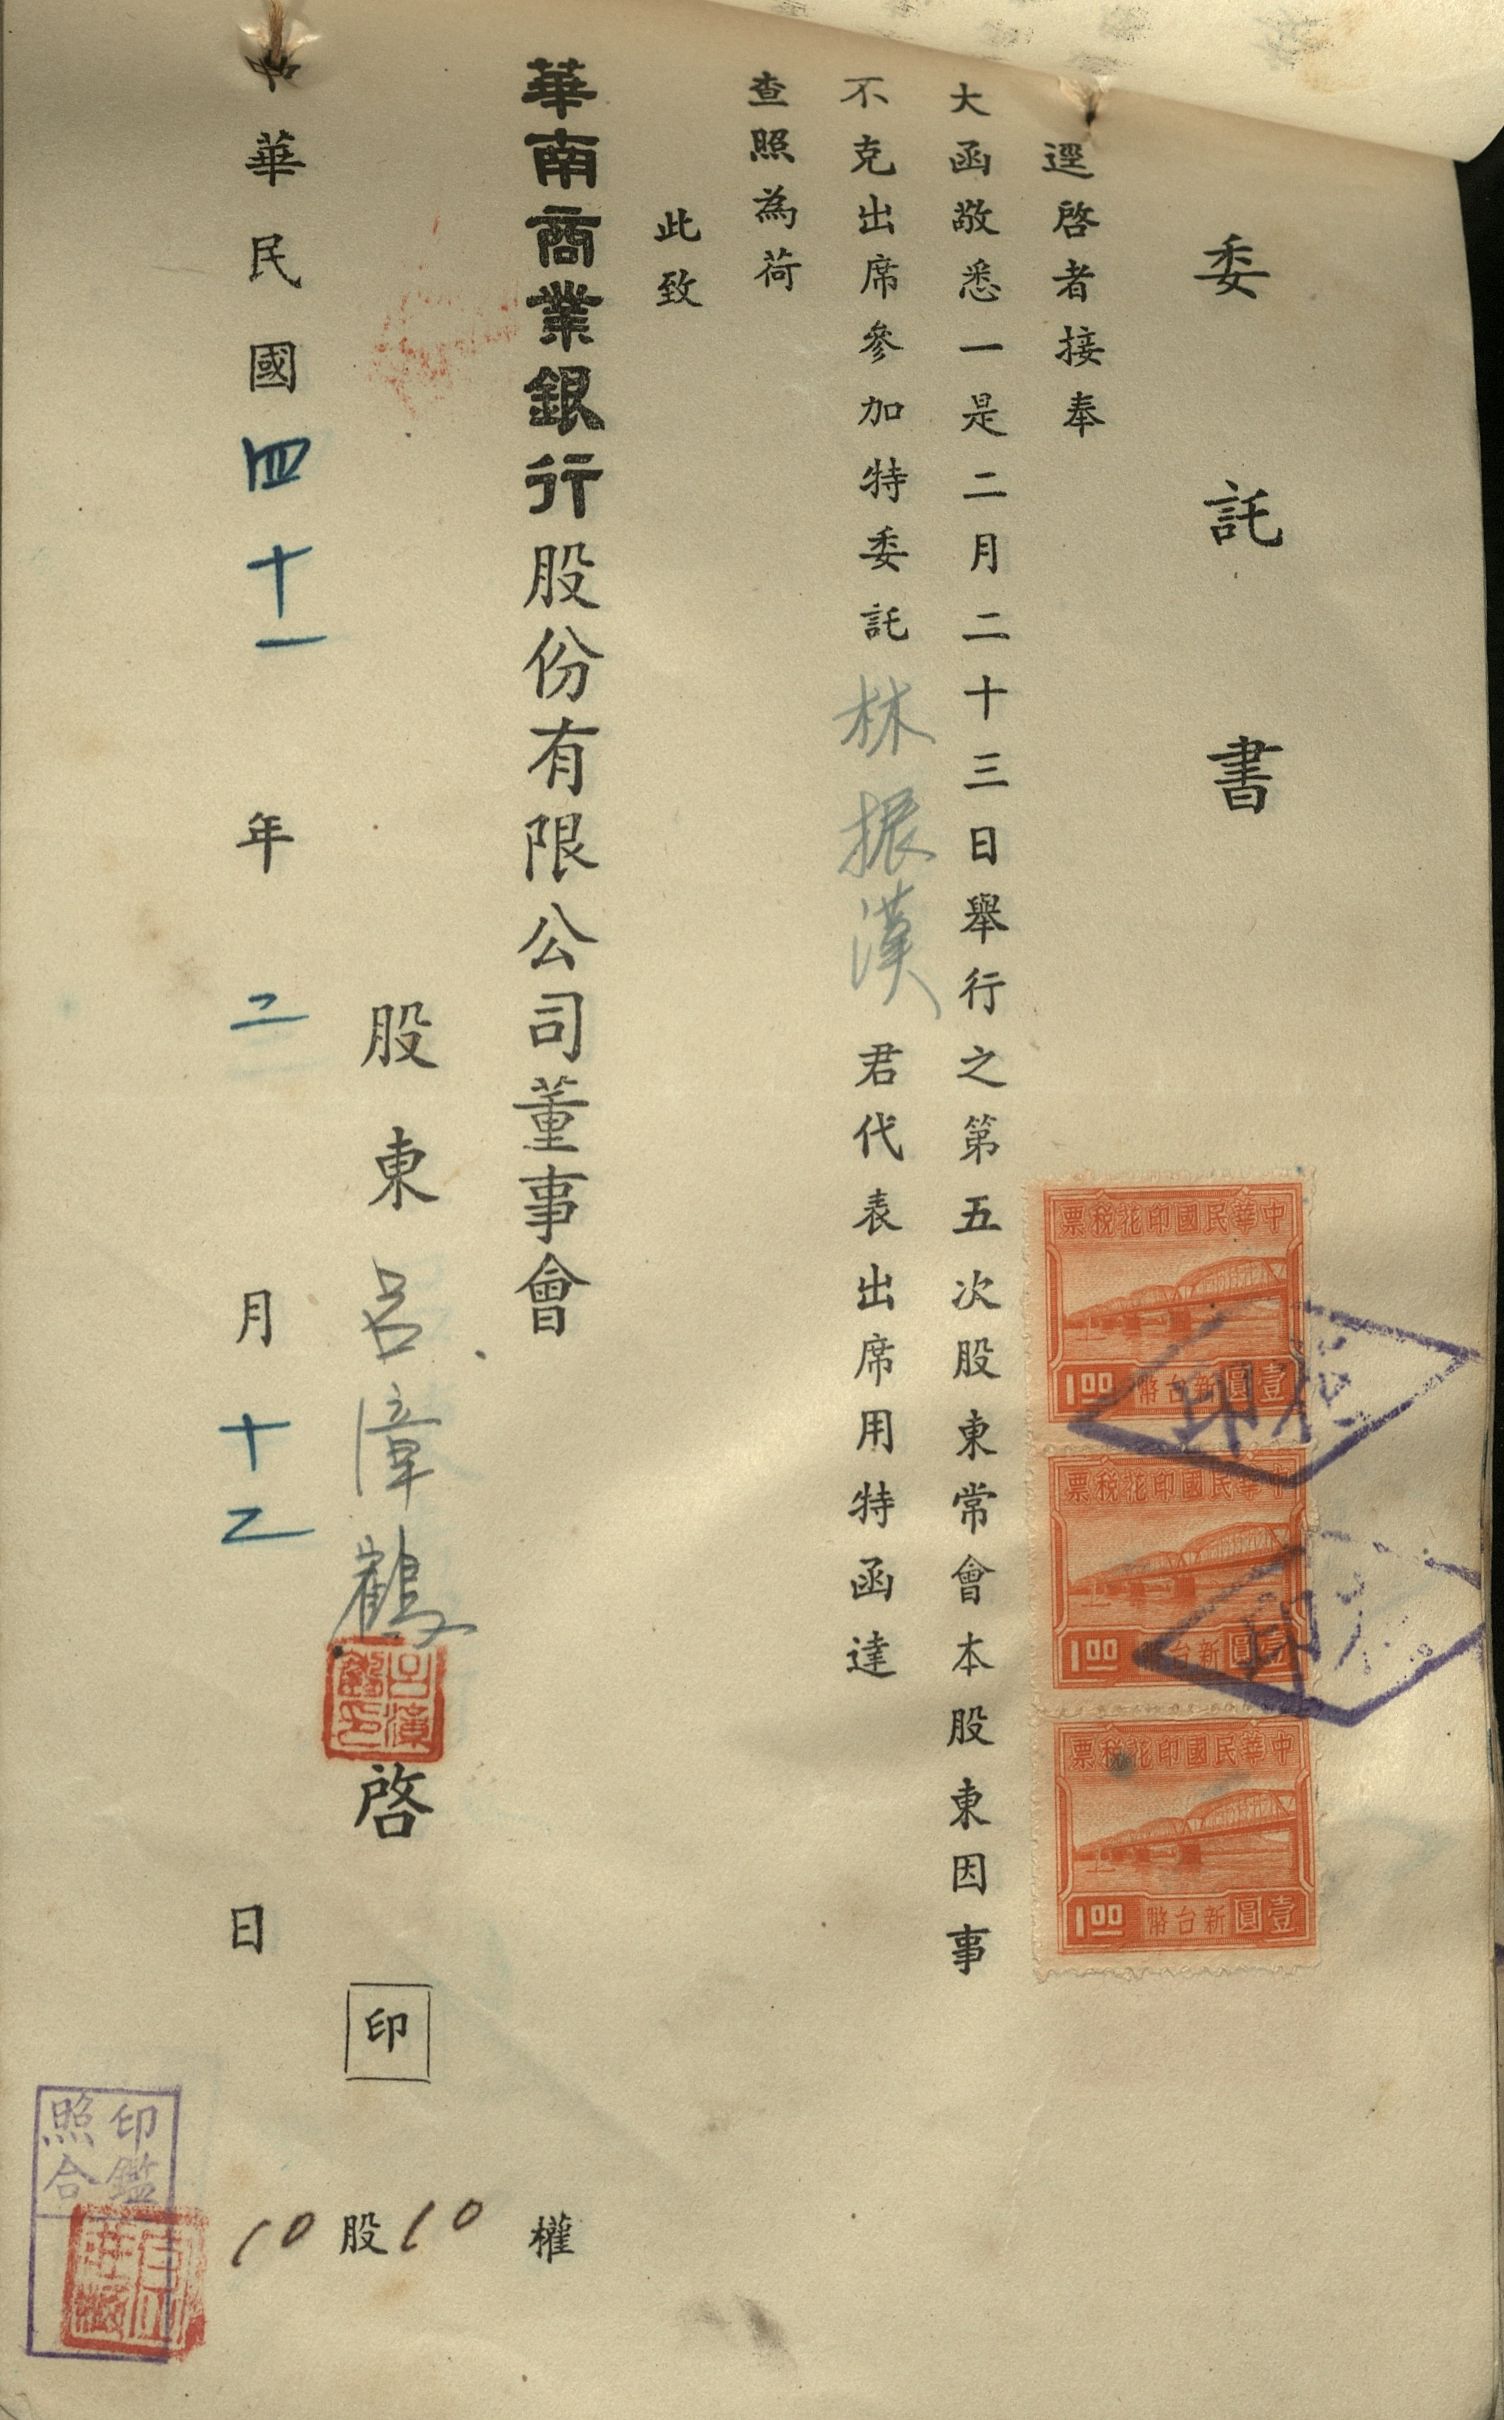 委託書
逕啓者接奉
大函敬悉一是二月二十三日舉行之第五次股東常會本股東因事
不克出席參加特委託林振漢君代表出席用特函達
查照為荷
此致
華南商業銀行股份有限公司董事會
股東呂漳鶴啓印
中華民國四十一年二月十乙日
10股10權
中華民國印花稅票
壹圓新台幣1.00
中華民國印花稅票
壹圓新台幣1.00
中華民國印花稅票
壹圓新台幣1.00
印花
印花
呂漳鶴印
印鑑
照合